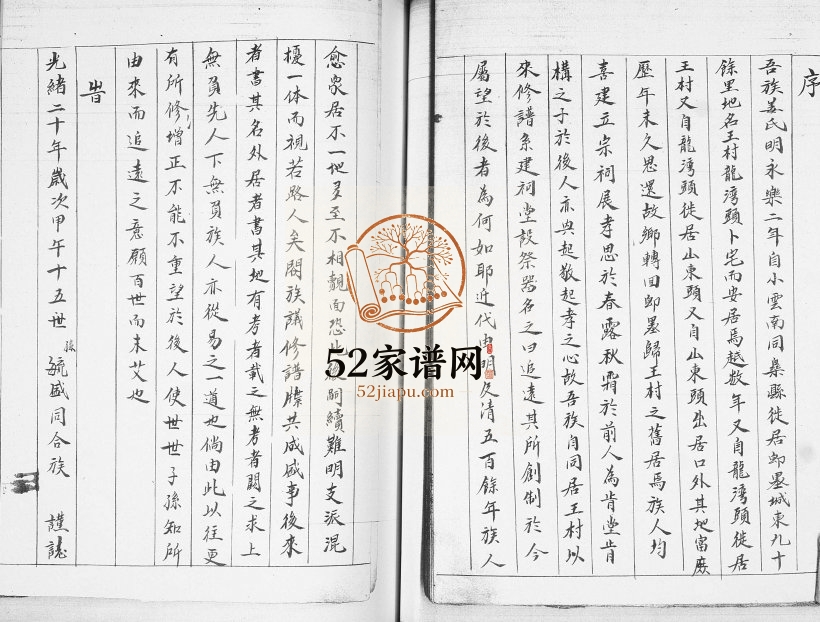 序
吾族姜氏明永樂二年自小雲南同桑縣徙居即墨城東九十
餘里地名王村龍湾頭卜宅而安居焉越数年又自龍湾頭徙居
王村又自龍湾頭徙居山東頭又自山東頭出居口外其地富庶
歷年未久思還故鄉轉回即墨歸王村之舊居焉族人均
喜建立宗祠展孝思於春露秋霜於前人為肯堂肯
構之子於後人亦興起敬起孝之心故吾族自同居王村以
來修譜系建祠堂設祭器名之曰追遠其所創制於今
屬望於後者為何如耶近代由明及清五百餘年族人
愈衆居不一地多至不相親而恐此後嗣續難明支派混
擾一体而視若路人矣閤族議修譜牒共成盛事後來
者書其名外居者書其地有考者載之無考者闕之求上
無負先人下無負族人亦從易之一道也倘由此以往更
有所修增正不能不重望於後人使世世子孫知所
由來而追遠之意願百世而未艾也
旹
光緒二十年歲次甲午十五世 孫 毓盛同合族 謹誌
52家谱网
52jiapu.com